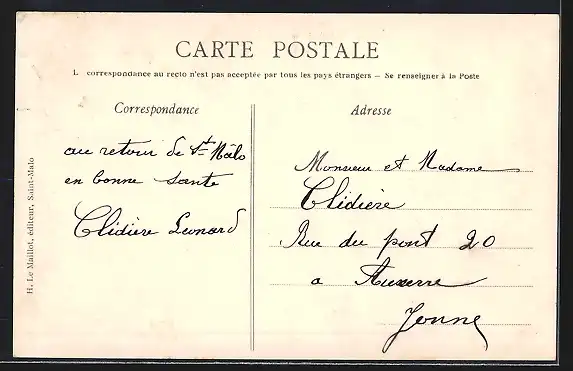 CARTE POSTALE
L correspondance au recto n'est pas acceptée par tous les pays étrangers — Se renseigner à la Poste
Correspondance
au retour de St Mâlo
en bonne sante
Clidière Leonard
Adresse
Monsieur et Madame
Clidière
Rue du pont 20
a Auxerre
Yonne
H. Le Maillot, éditeur, Saint-Malo